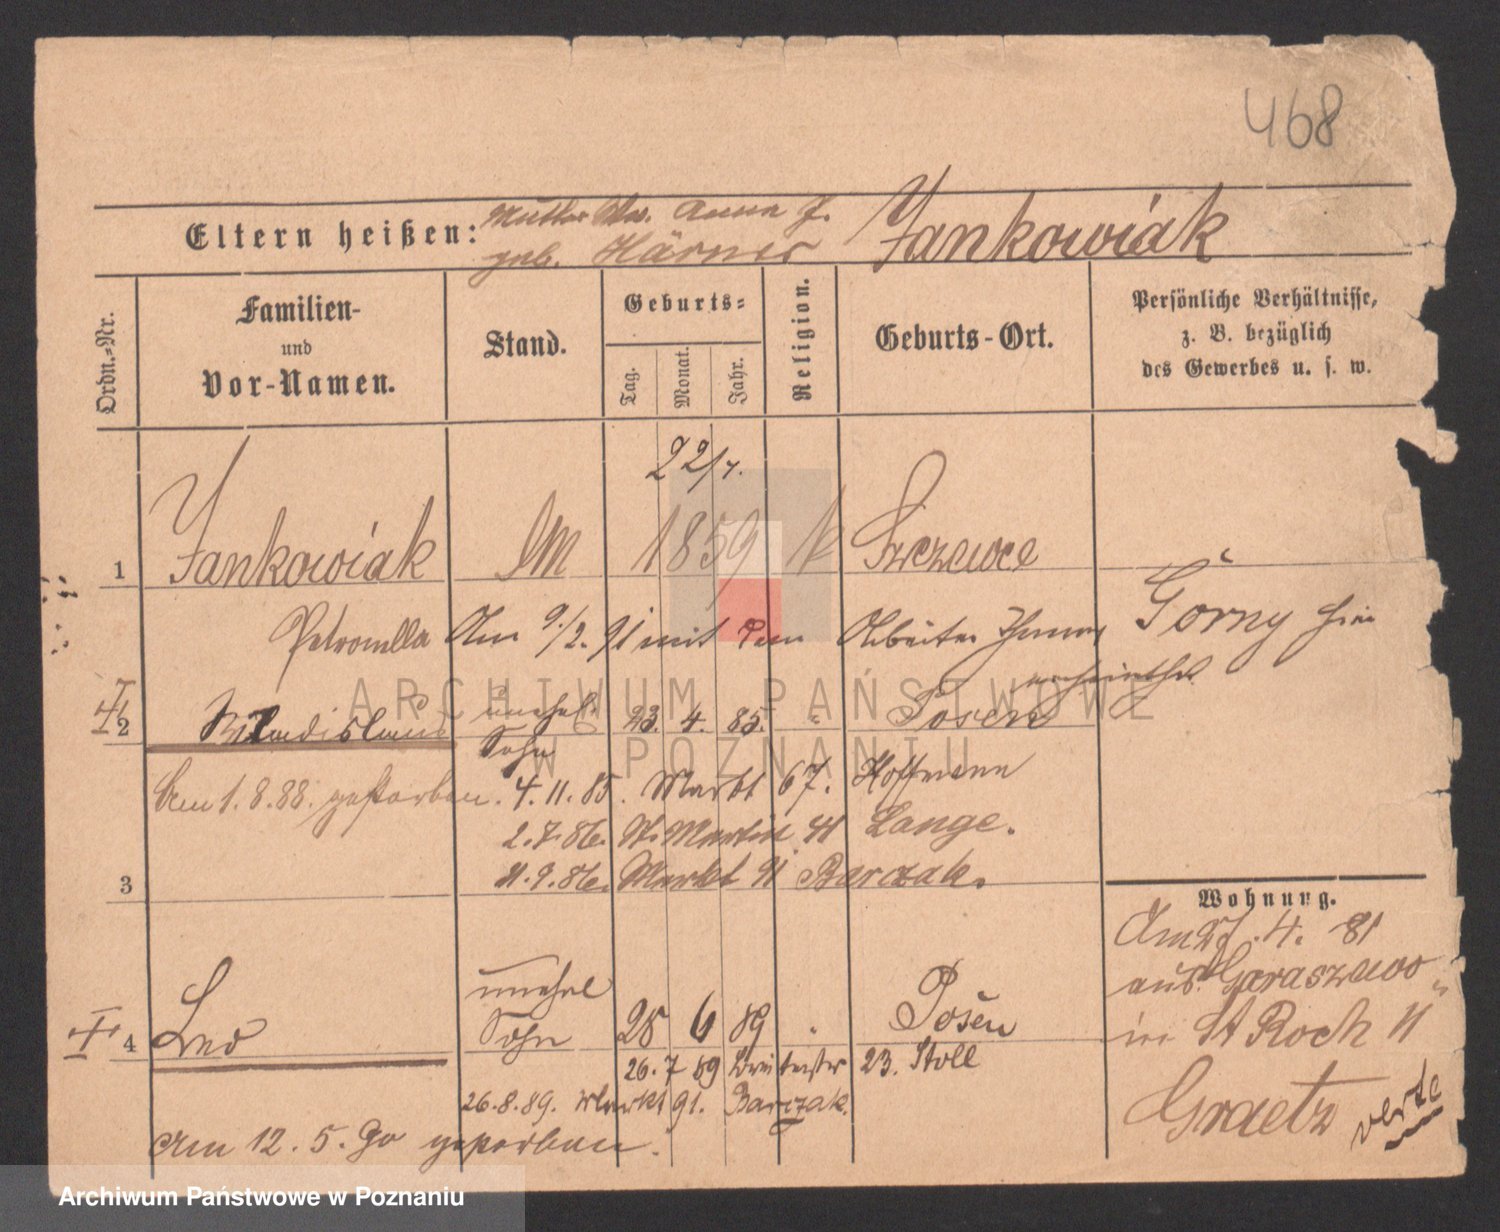 468
Eltern heißen: Mutter Ww. Anna J. Jankowiak
geb. Härner
Ordn.-Nr.
Familien- und Vor-Namen.
Stand.
Geburts-
Tag. Monat. Jahr.
Religion.
Geburts-Ort.
Persönliche Verhältnisse, z. B. bezüglich des Gewerbes u. s. w.
22/7.
1 Jankowiak 1859 k Szczewce
Petronella Am 9/2. 91 mit dem Arbeiter Górny hier
verheirathet
2 Wladislaus unehel. 23. 4. 85. " Posen
Sohn
Am 1. 8. 88. gestorben. 4. 11. 85. Markt 67. Hoffmann
2. 7. 86. St. Martin 41 Lange.
11. 9. 86. Markt 91 Barczak.
3
Wohnung.
Am 27. 4. 81
aus Garaszewo
in St Roch 11
Graetz
verte
unehel
4 Leo Sohn 28 6 89 " Posen
26. 7 89 23. Stoll
26. 8. 89. Markt 91. Barczak.
am 12. 5. 90 gestorben.
ARCHIWUM PAŃSTWOWE
W POZNANIU
Archiwum Państwowe w Poznaniu